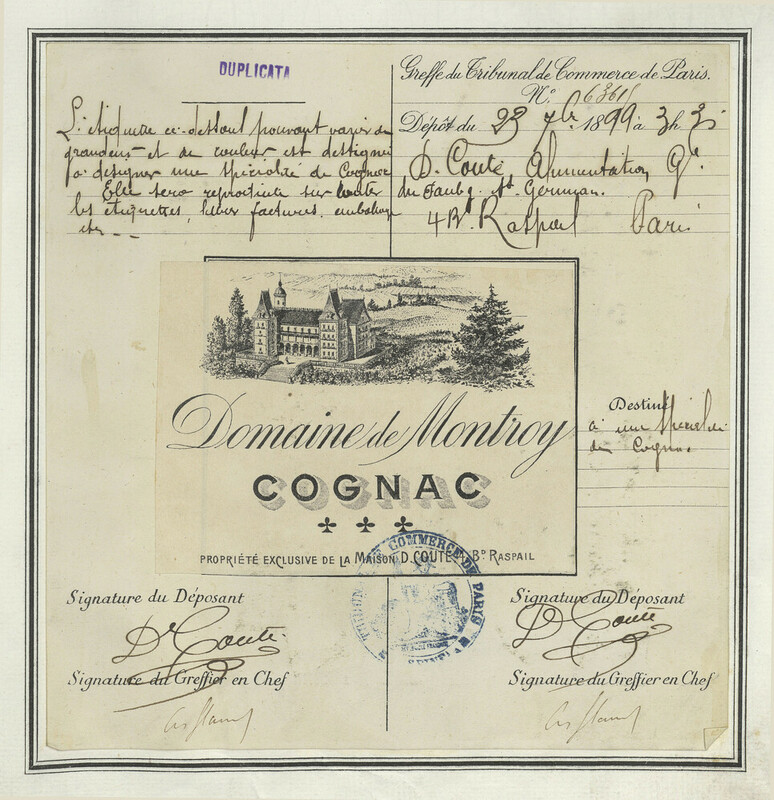 DUPLICATA
L'étiquette ci-dessous pouvant varier de
grandeur et de couleur est destinée
à désigner une spécialité de Cognac
Elle sera reproduite sur toutes
les étiquettes, factures, emballages
etc
Greffe du Tribunal de Commerce de Paris.
N°
Dépôt du 23 7bre 1899 à 3h
D. Couté, Alimentation Gle
du Faubg. St. Germain.
4 Bd Raspail Paris
Domaine de Montroy
COGNAC
PROPRIÉTÉ EXCLUSIVE DE LA MAISON D. COUTÉ 4, BD RASPAIL
Destiné
à une spécialité
de Cognac
TRIBUNAL DE COMMERCE DE PARIS
Signature du Déposant
D. Couté
Signature du Greffier en Chef
Signature du Déposant
D. Couté
Signature du Greffier en Chef